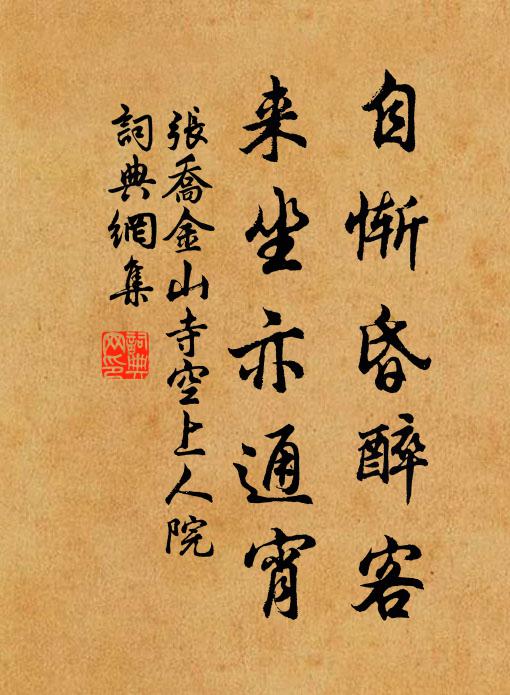 自慚昏醉客
来坐亦通宵
張喬金山寺空上人院
詞典網集
詞典網印